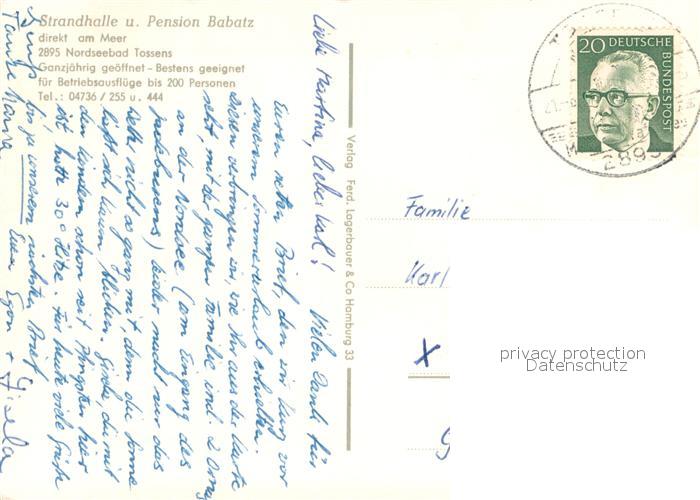 Strandhalle u. Pension Babatz
direkt am Meer
2895 Nordseebad Tossens
Ganzjährig geöffnet - Bestens geeignet
für Betriebsausflüge bis 200 Personen
Tel.: 04736 / 255 u. 444
20 DEUTSCHE
BUNDESPOST
2893
Liebe Martina, lieber Karl! Vielen Dank für
Euren netten Brief, den wir kurz vor
unserem Sommerurlaub erhielten.
Diesen verbringen wir, wie Ihr aus der Karte
seht, mit der ganzen Familie und 2 Omas
an der Nordsee (am Eingang des
Jadebusens) leider macht nur das
nicht so ganz mit, denn die Sonne
läßt sich kaum blicken. Gisela, die mit
den Kindern schon seit Pfingsten hier
ist hatte 30° Hitze. Für heute viele Grüße
bis zu unserem nächsten Brief
Eure Egon + Gisela
Verlag Ferd. Lagerbauer & Co Hamburg 33
Familie
Karl
x
privacy protection
Datenschutz